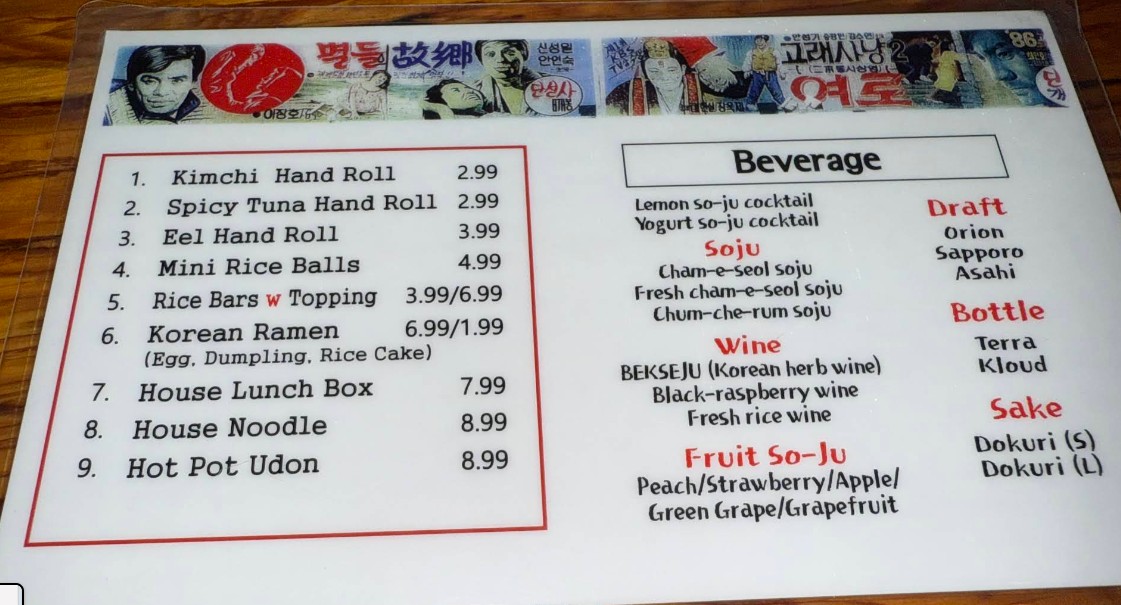 별들의 故鄕
신성일
안인숙
단성사
고래사냥2
여로
86.
1. Kimchi Hand Roll 2.99
2. Spicy Tuna Hand Roll 2.99
3. Eel Hand Roll 3.99
4. Mini Rice Balls 4.99
5. Rice Bars w Topping 3.99/6.99
6. Korean Ramen 6.99/1.99
(Egg, Dumpling, Rice Cake)
7. House Lunch Box 7.99
8. House Noodle 8.99
9. Hot Pot Udon 8.99
Beverage
Lemon so-ju cocktail
Yogurt so-ju cocktail
Soju
Cham-e-seol soju
Fresh cham-e-seol soju
Chum-che-rum soju
Wine
BEKSEJU (Korean herb wine)
Black-raspberry wine
Fresh rice wine
Fruit So-Ju
Peach/Strawberry/Apple/
Green Grape/Grapefruit
Draft
Orion
Sapporo
Asahi
Bottle
Terra
Kloud
Sake
Dokuri (S)
Dokuri (L)